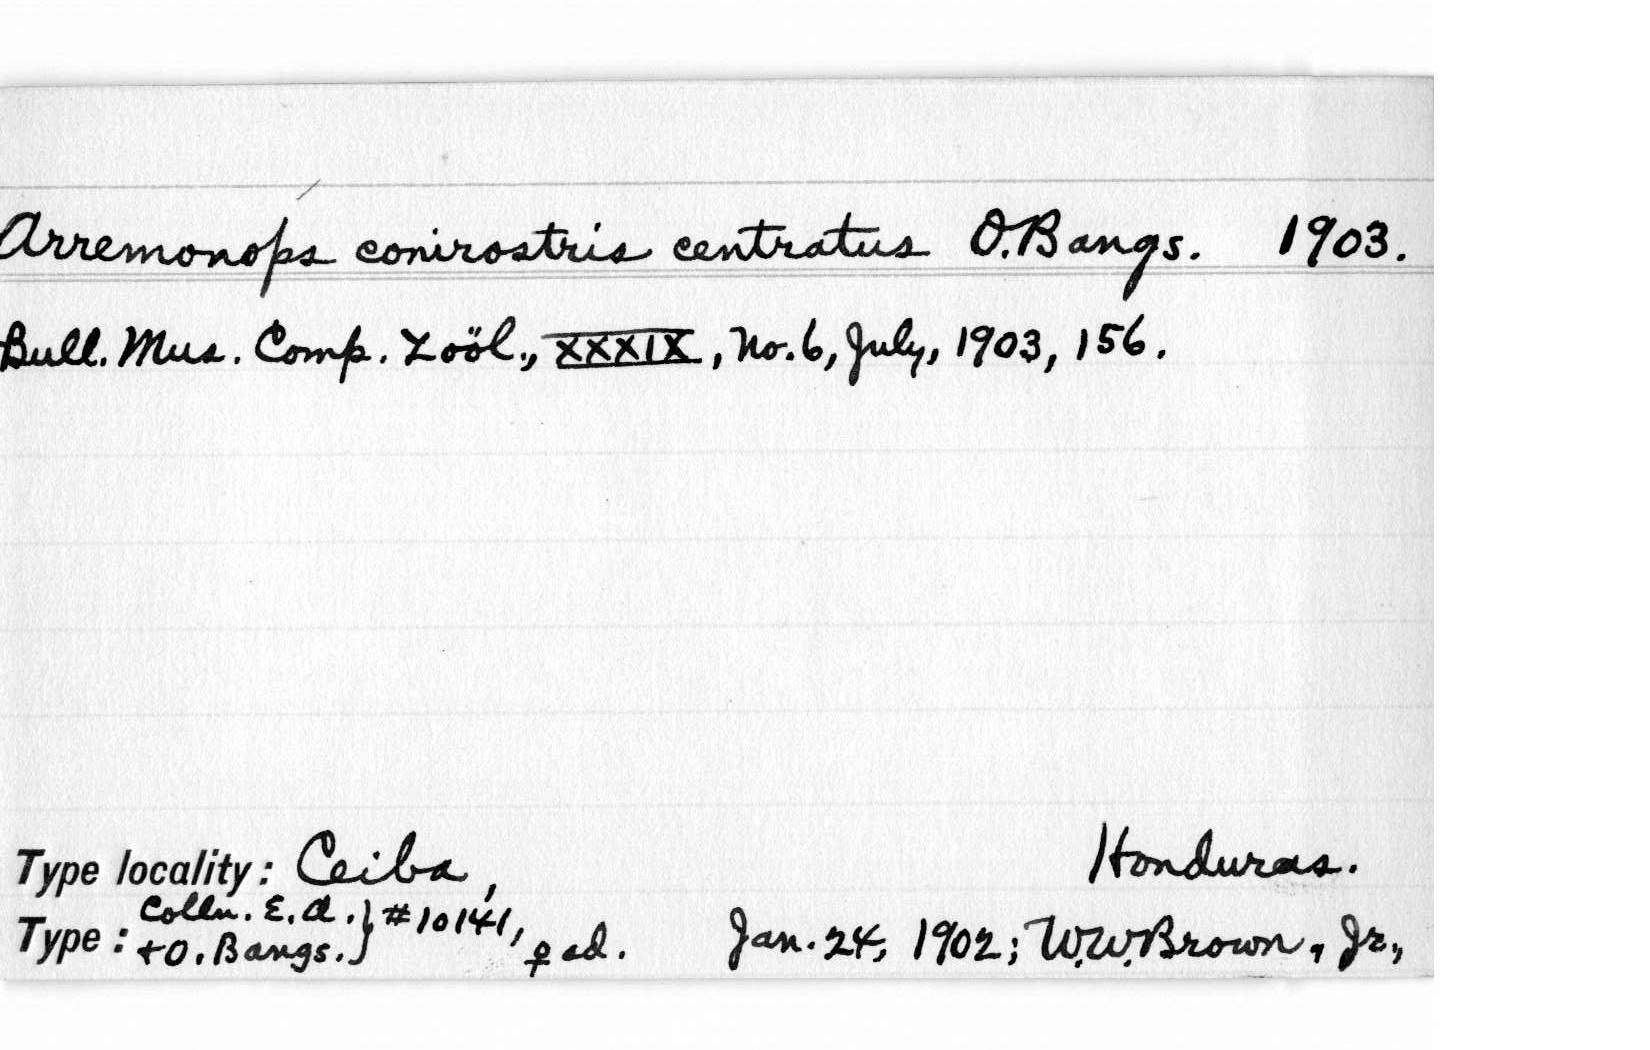 Arremonops conirostris centratus O.Bangs. 1903.
Bull. Mus. Comp. Zoöl., XXXIX, No.6, July, 1903, 156.
Type locality: Ceiba, Honduras.
Type: Colln. E.A. + O. Bangs.} #10141, ♀ ad. Jan. 24, 1902; W.W.Brown, Jr.,